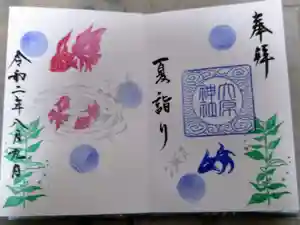 奉拝
夏詣り
大原
神社
令和二年八月九日